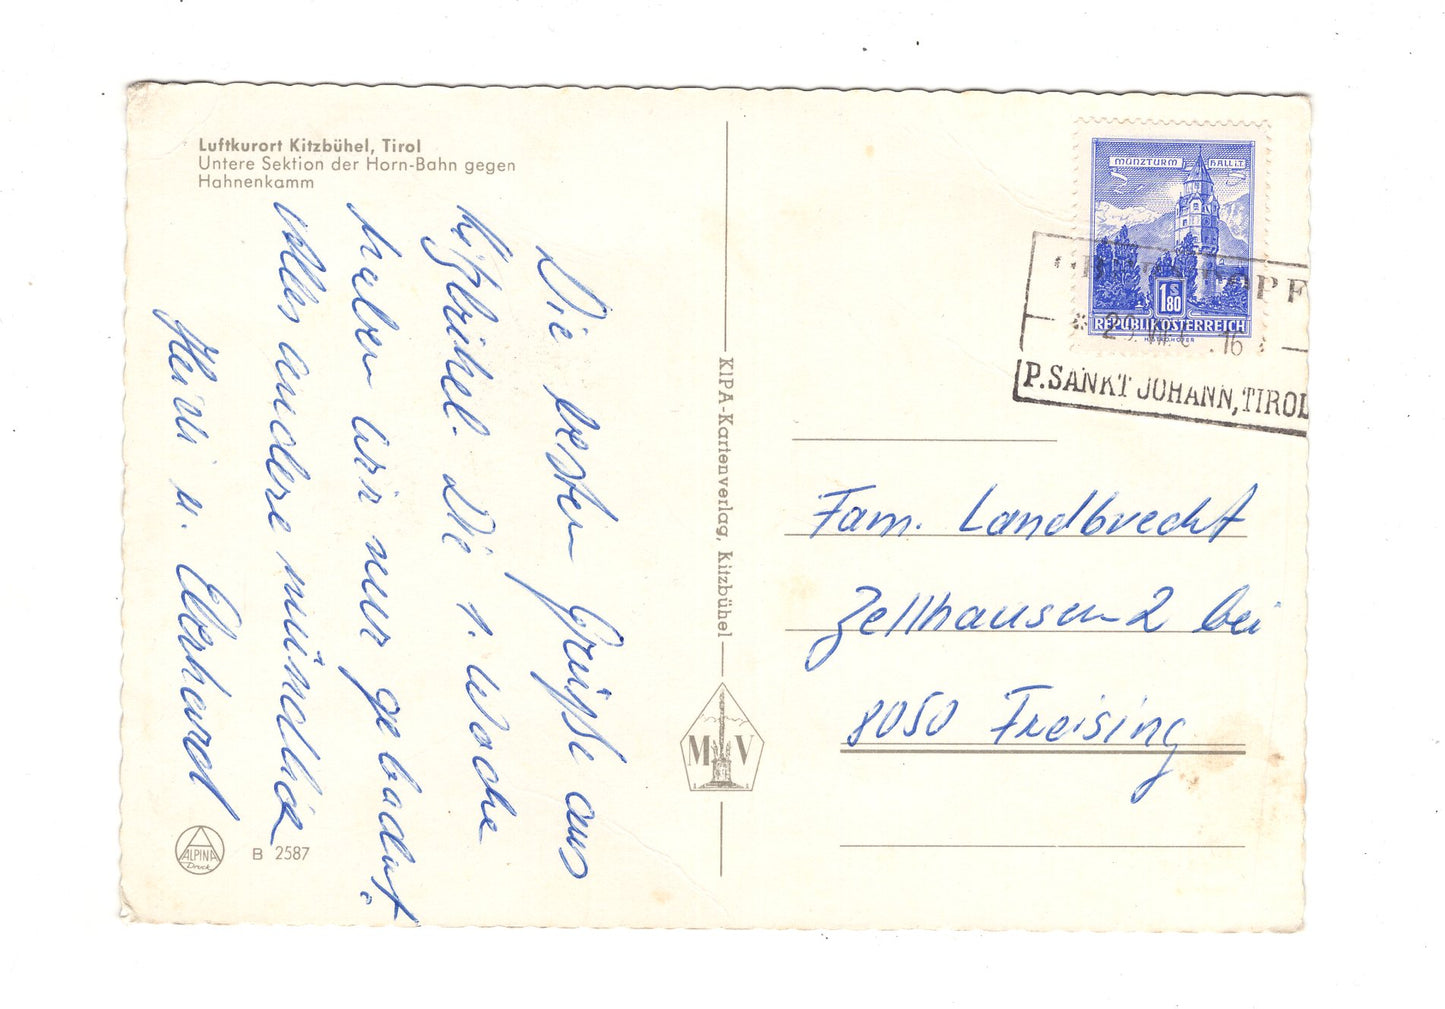 Luftkurort Kitzbühel, Tirol
Untere Sektion der Horn-Bahn gegen
Hahnenkamm
Die besten Grüße aus
Kitzbühel. Die 1. Woche
haben wir nur gebadet.
Alles andere mündlich
Heini u. Gerhard
ALPINA
Druck
B 2587
KIPA-Kartenverlag, Kitzbühel
M V
MÜNZTURM HALL i.T.
1 S 80
REPUBLIK ÖSTERREICH
P. SANKT JOHANN, TIROL
Fam. Landbrecht
Zellhausen 2 bei
8050 Freising